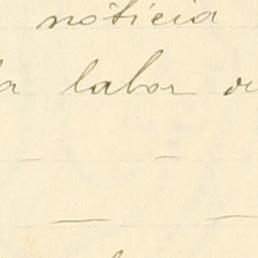 noticia
labor